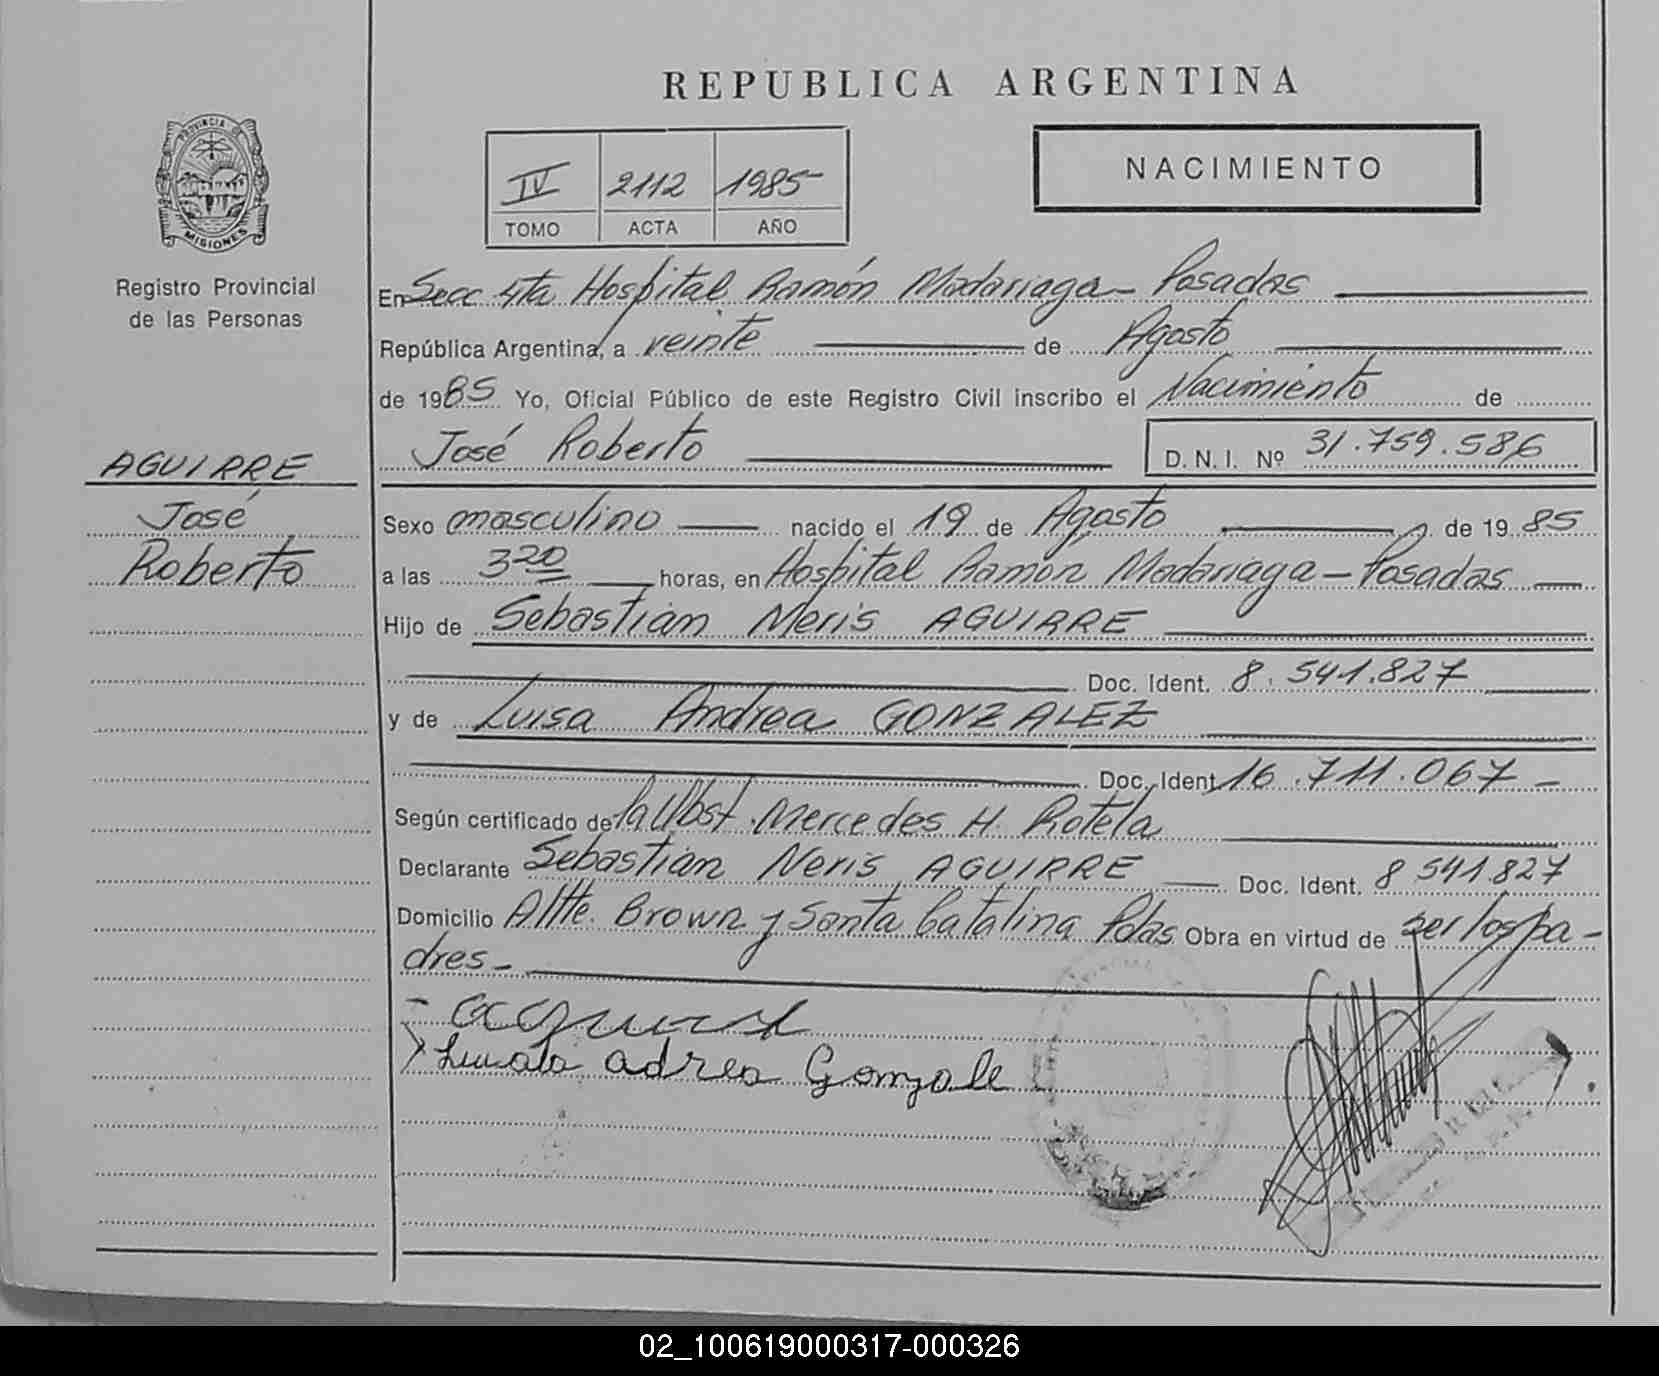 REPUBLICA ARGENTINA
PROVINCIA DE
MISIONES
Registro Provincial
de las Personas
IV 2112 1985
TOMO ACTA AÑO
NACIMIENTO
En Secc 4ta Hospital Ramón Madariaga - Posadas
República Argentina, a veinte de Agosto
de 1985 Yo, Oficial Público de este Registro Civil inscribo el Nacimiento de
José Roberto D. N. I. Nº 31.759.586
AGUIRRE
José
Roberto
Sexo masculino nacido el 19 de Agosto de 1985
a las 3 20 horas, en Hospital Ramón Madariaga - Posadas
Hijo de Sebastián Neris AGUIRRE
Doc. Ident. 8.541.827
y de Luisa Andrea GONZALEZ
Doc. Ident. 16.711.067 -
Según certificado de la Obst. Mercedes H. Rotela
Declarante Sebastián Neris AGUIRRE Doc. Ident. 8 541.827
Domicilio Alte. Brown y Santa Catalina Pdas Obra en virtud de ser los pa-
dres -
adrea Gonzale
02_100619000317-000326